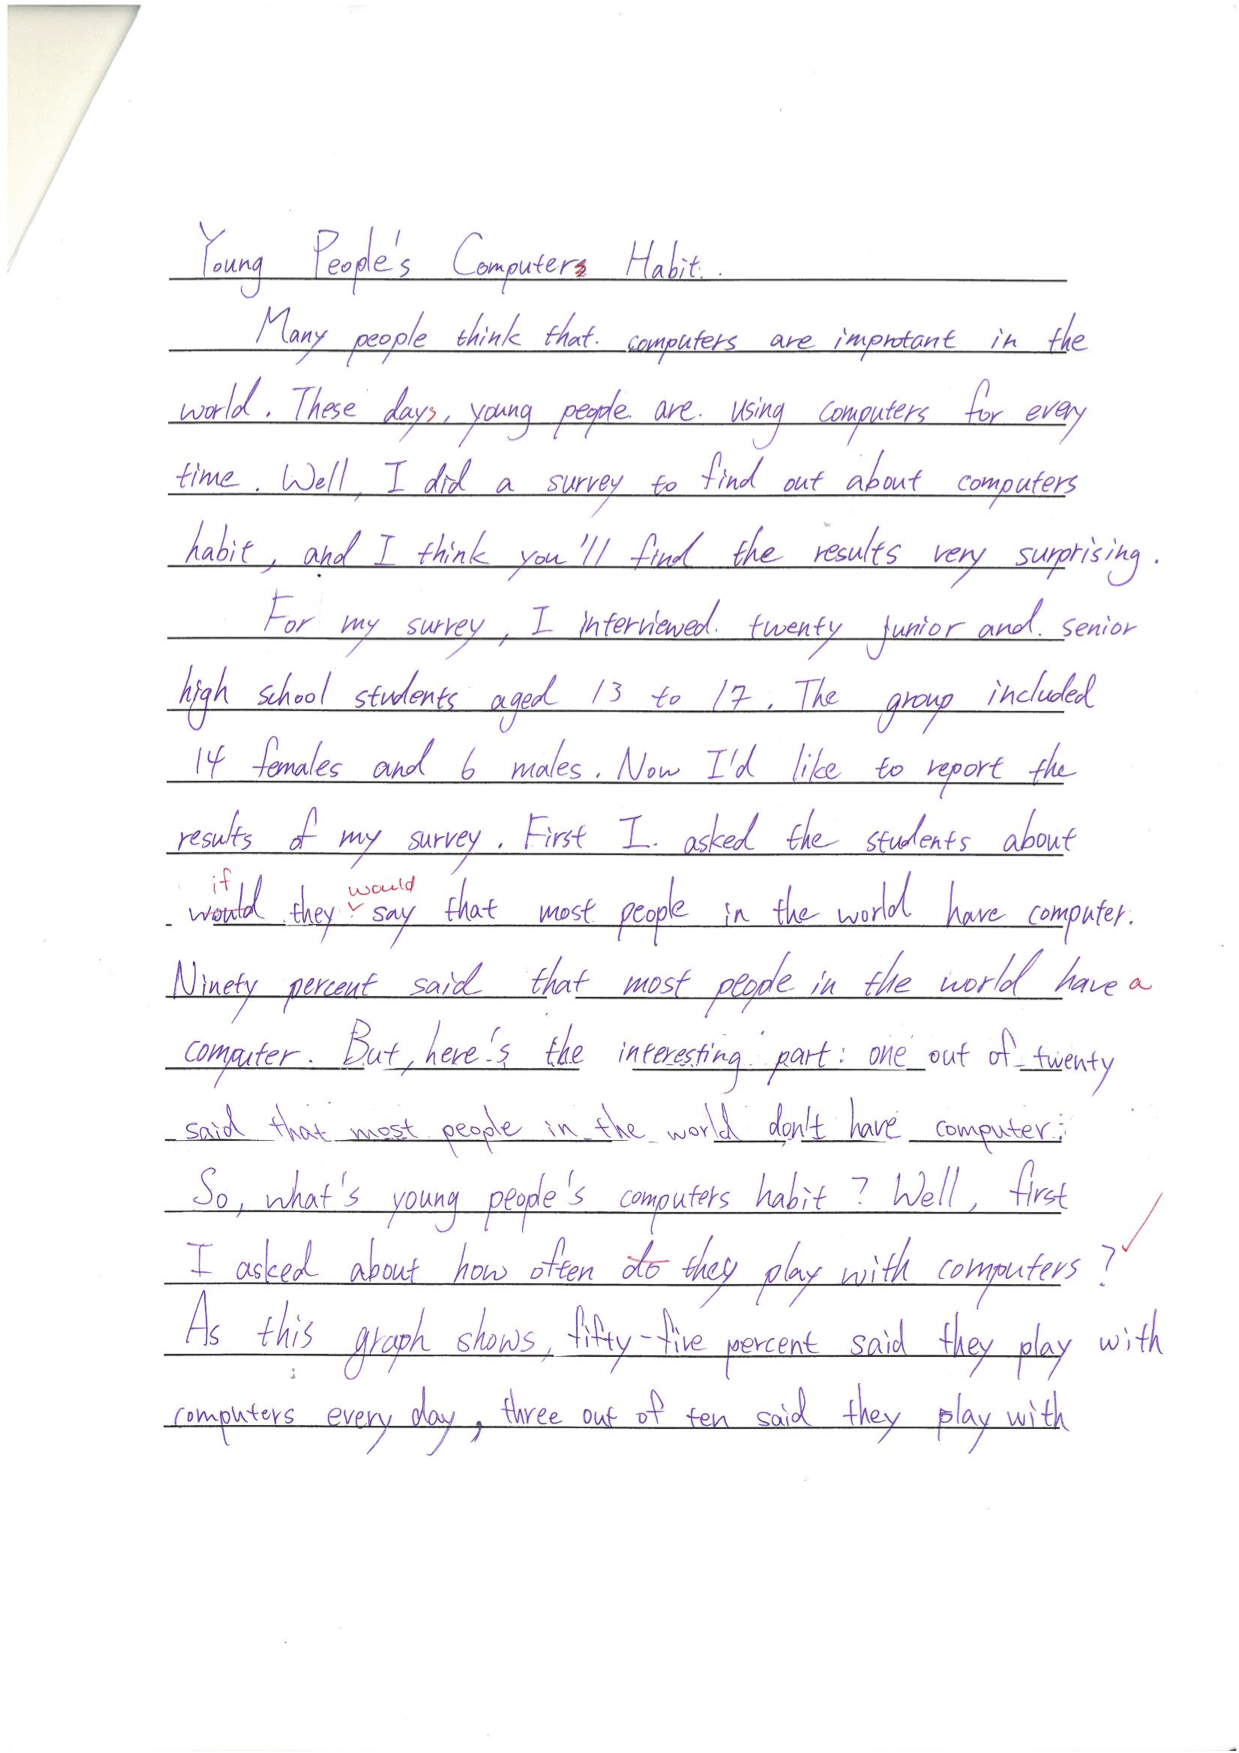 Young People's Computers Habit.
Many people think that computers are improtant in the
world. These days, young people are using computers for every
time. Well, I did a survey to find out about computers
habit, and I think you'll find the results very surprising.
For my survey, I interviewed twenty junior and senior
high school students aged 13 to 17. The group included
14 females and 6 males. Now I'd like to report the
results of my survey. First I asked the students about
if would
would they say that most people in the world have computer.
Ninety percent said that most people in the world have a
computer. But, here's the interesting part: one out of twenty
said that most people in the world don't have computer.
So, what's young people's computers habit? Well, first
I asked about how often do they play with computers?
As this graph shows, fifty-five percent said they play with
computers every day, three out of ten said they play with